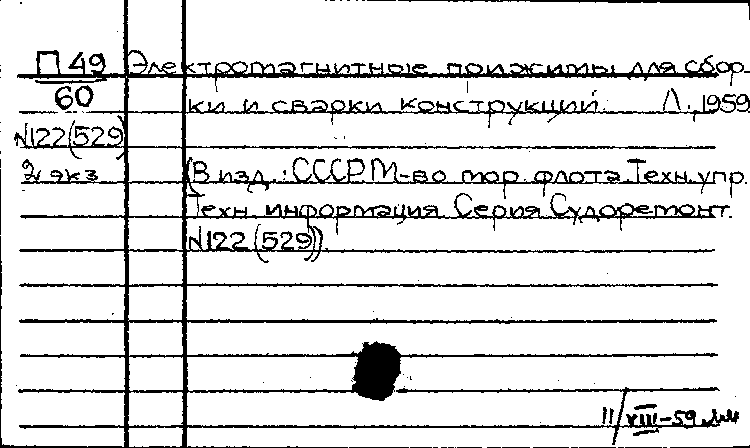 П 49 Электромагнитные прижимы для сбор-
60 ки и сварки конструкций. Л., 1959
N122(529)
2 экз (В изд.: СССР. М-во мор. флота. Техн. упр.
Техн. информация. Серия Судоремонт.
N122 (529)).
11/VIII-59